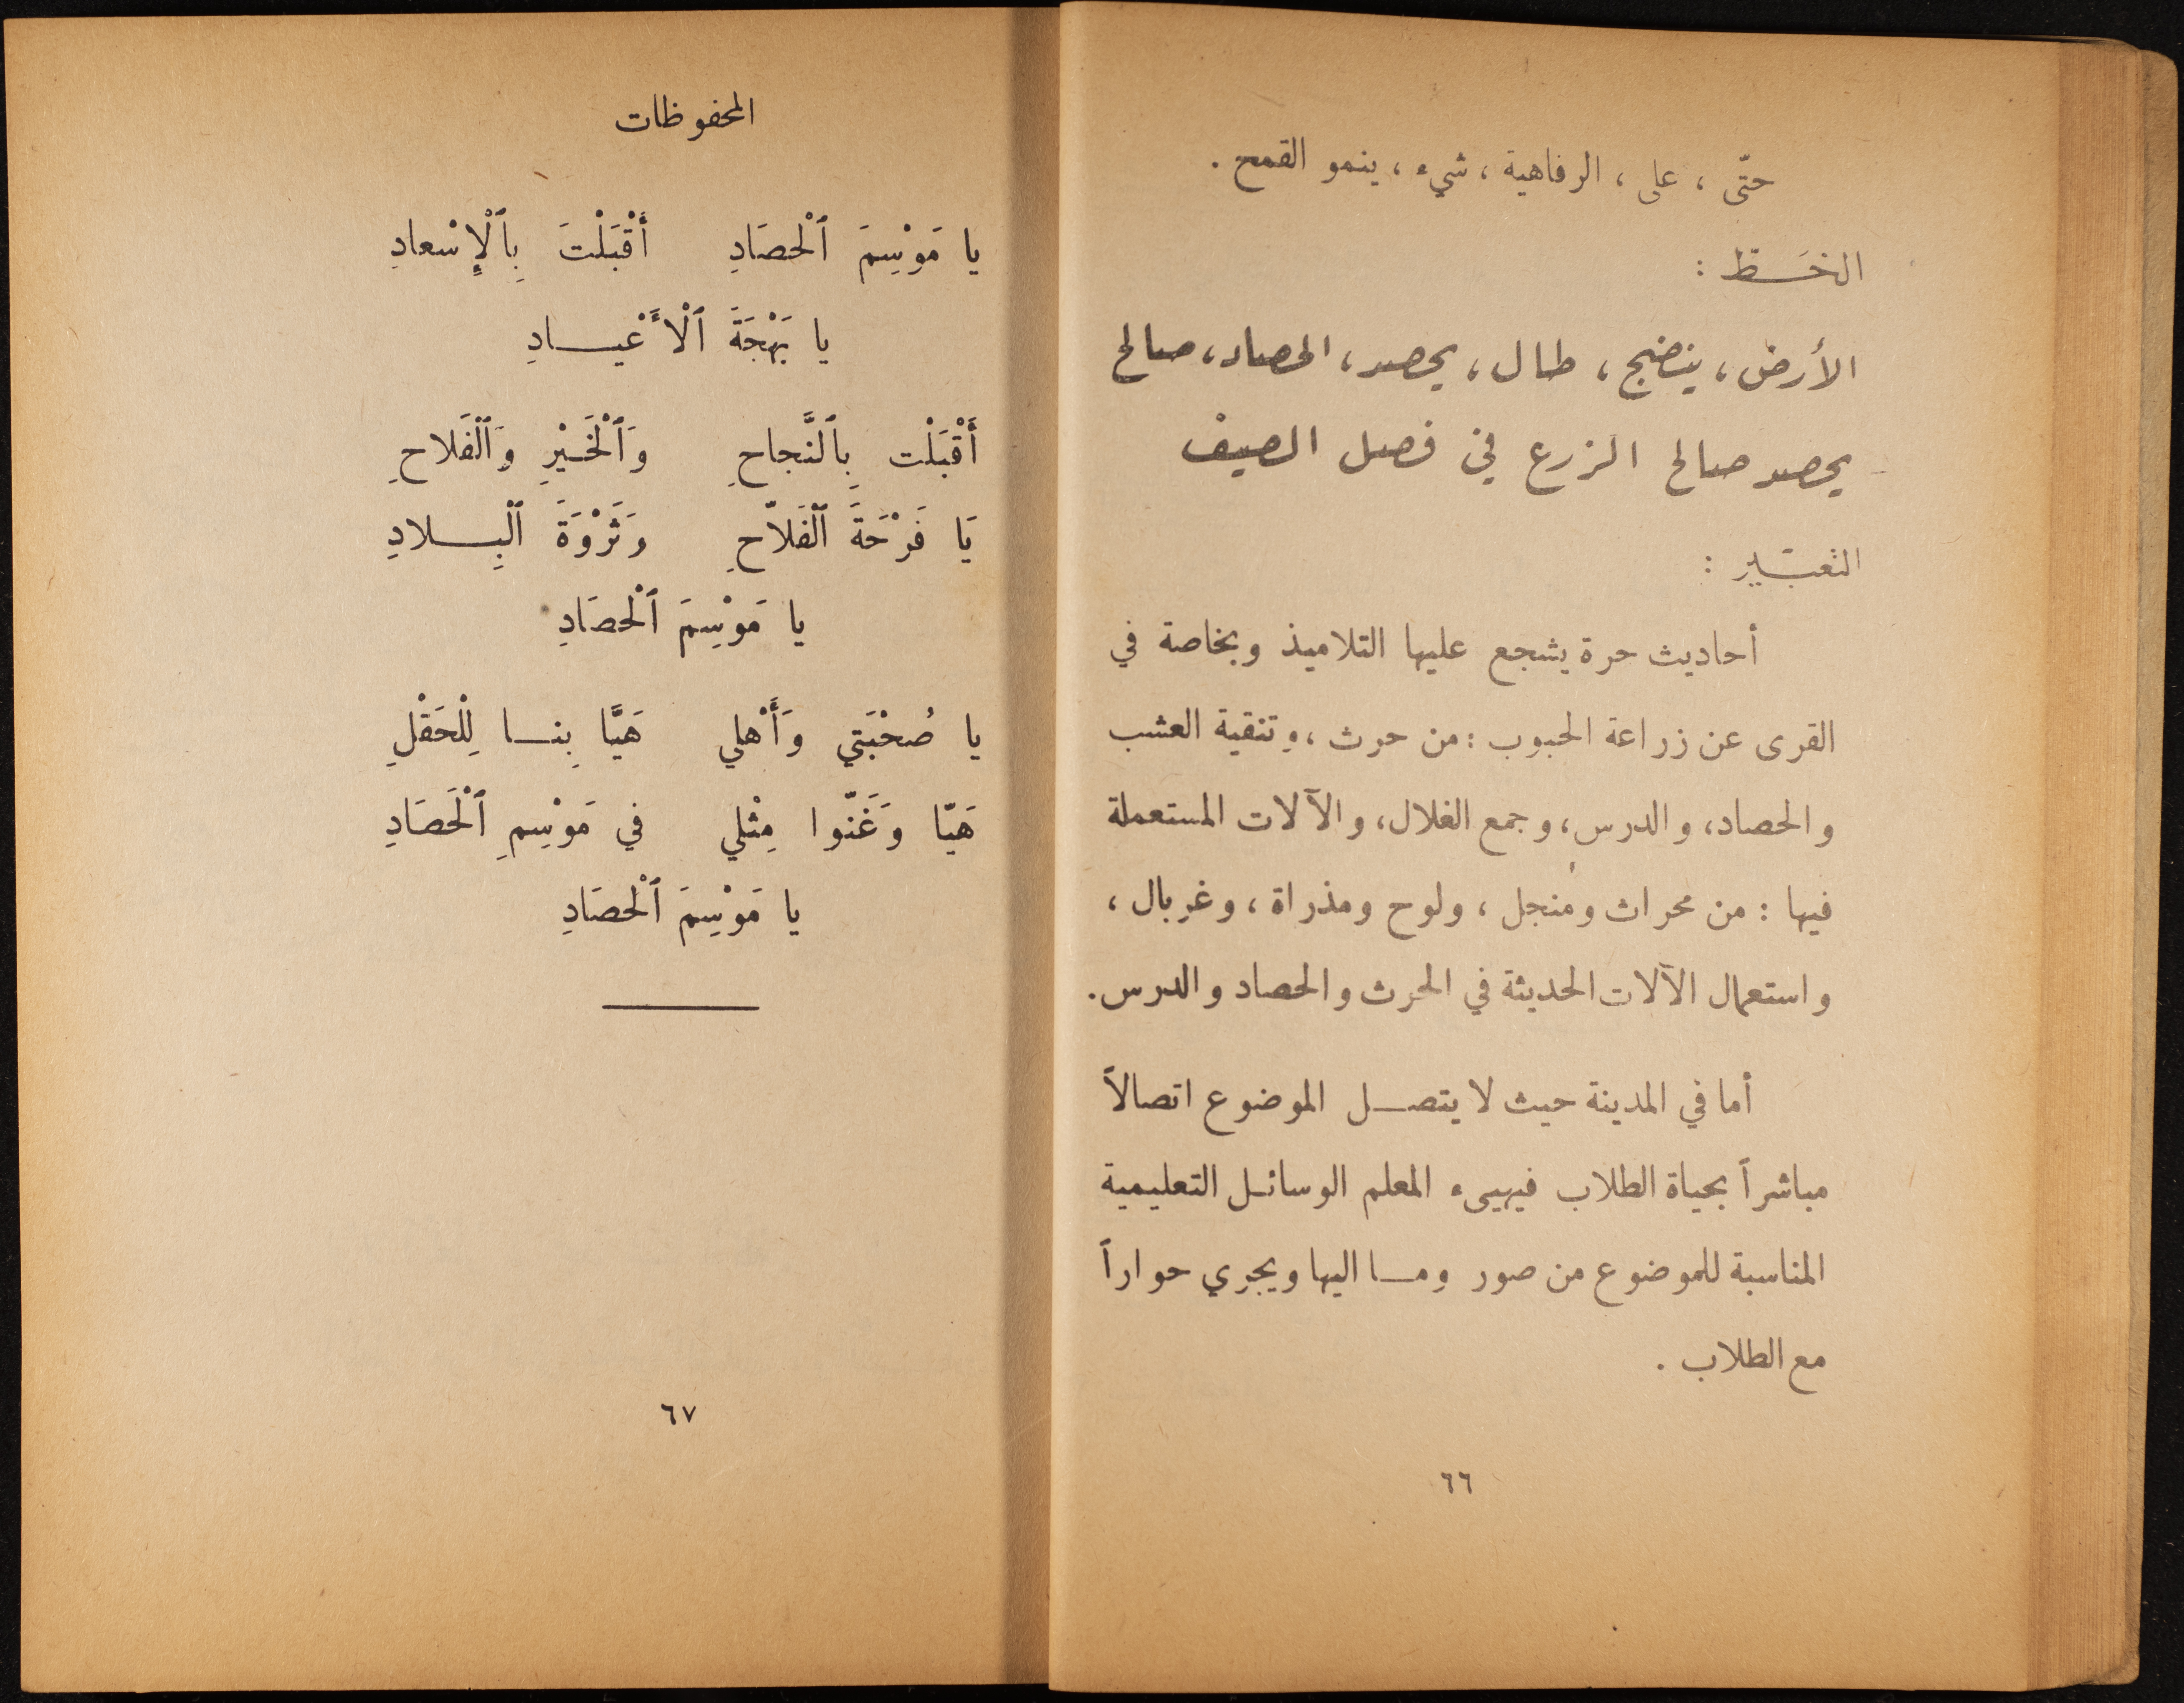 حتّى ، على ، الرفاهية ، شيء ، ينمو القمح .
الخَـط :
الأرض ، ينضج ، طال ، يحصد ، الحصاد ، صالح
يحصد صالح الزرع في فصل الصيف
التعبَـير :
أحاديث حرة يشجع عليها التلاميذ وبخاصة في
القرى عن زراعة الحبوب : من حرث ، وتنقية العشب
والحصاد ، والدرس ، وجمع الغلال ، والآلات المستعملة
فيها : من محراث ومنجل ، ولوح ومذراة ، وغربال ،
واستعمال الآلات الحديثة في الحرث والحصاد والدرس .
أما في المدينة حيث لا يتصـل الموضوع اتصالاً
مباشراً بحياة الطلاب فيهيىء المعلم الوسائـل التعليمية
المناسبة للموضوع من صور ومـا اليها ويجري حواراً
مع الطلاب .
٦٦
المحفوظات
يا مَوْسِمَ ٱلْحصَادِ أَقْبَلْتَ بِٱلْإِسْعادِ
يا بَهْجَةَ ٱلْأَعْيـادِ
أَقْبَلْت بِٱلنَّجاحِ وَٱلْخَـيْرِ وَٱلْفَلاحِ
يَا فَرْحَةَ ٱلْفَلاّحِ وَثَرْوَةَ ٱلْبِـلادِ
يا مَوْسِمَ ٱلْحصَادِ
يا صُحْبَتي وَأَهْلي هَيَّا بِنـا لِلْحَقْلِ
هَيّا وَغَنّوا مِثْلي في مَوْسِمِ ٱلْحَصَادِ
يا مَوْسِمَ ٱلْحصَادِ
٦٧